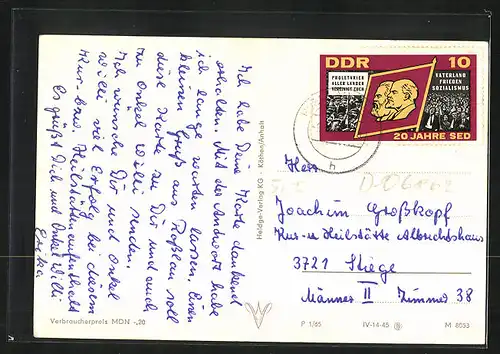 Ich habe Deine Karte dankend
erhalten. Mit der Antwort habe
ich lange warten lassen. Einen
kleinen Gruß aus Roßlau soll
diese Karte zu Dir und auch
zu Onkel Willi senden.
Ich wünsche Dir und Onkel
Willi viel Erfolg bei diesem
Kur- bzw. Heilstättenaufenthalt
Es grüßt Dich und Onkel Willi
Erika
Verbraucherpreis MDN -,20
Heldge-Verlag KG Köthen/Anhalt
DDR 10
PROLETARIER
ALLER LÄNDER
VEREINIGT EUCH
VATERLAND
FRIEDEN
SOZIALISMUS
20 JAHRE SED
h
Herr
Joachim Großkopf
Kur- u Heilstätte Albrechtshaus
3721 Stiege
Männer II Zimmer 38
P 1/65 IV-14-45 M 8053